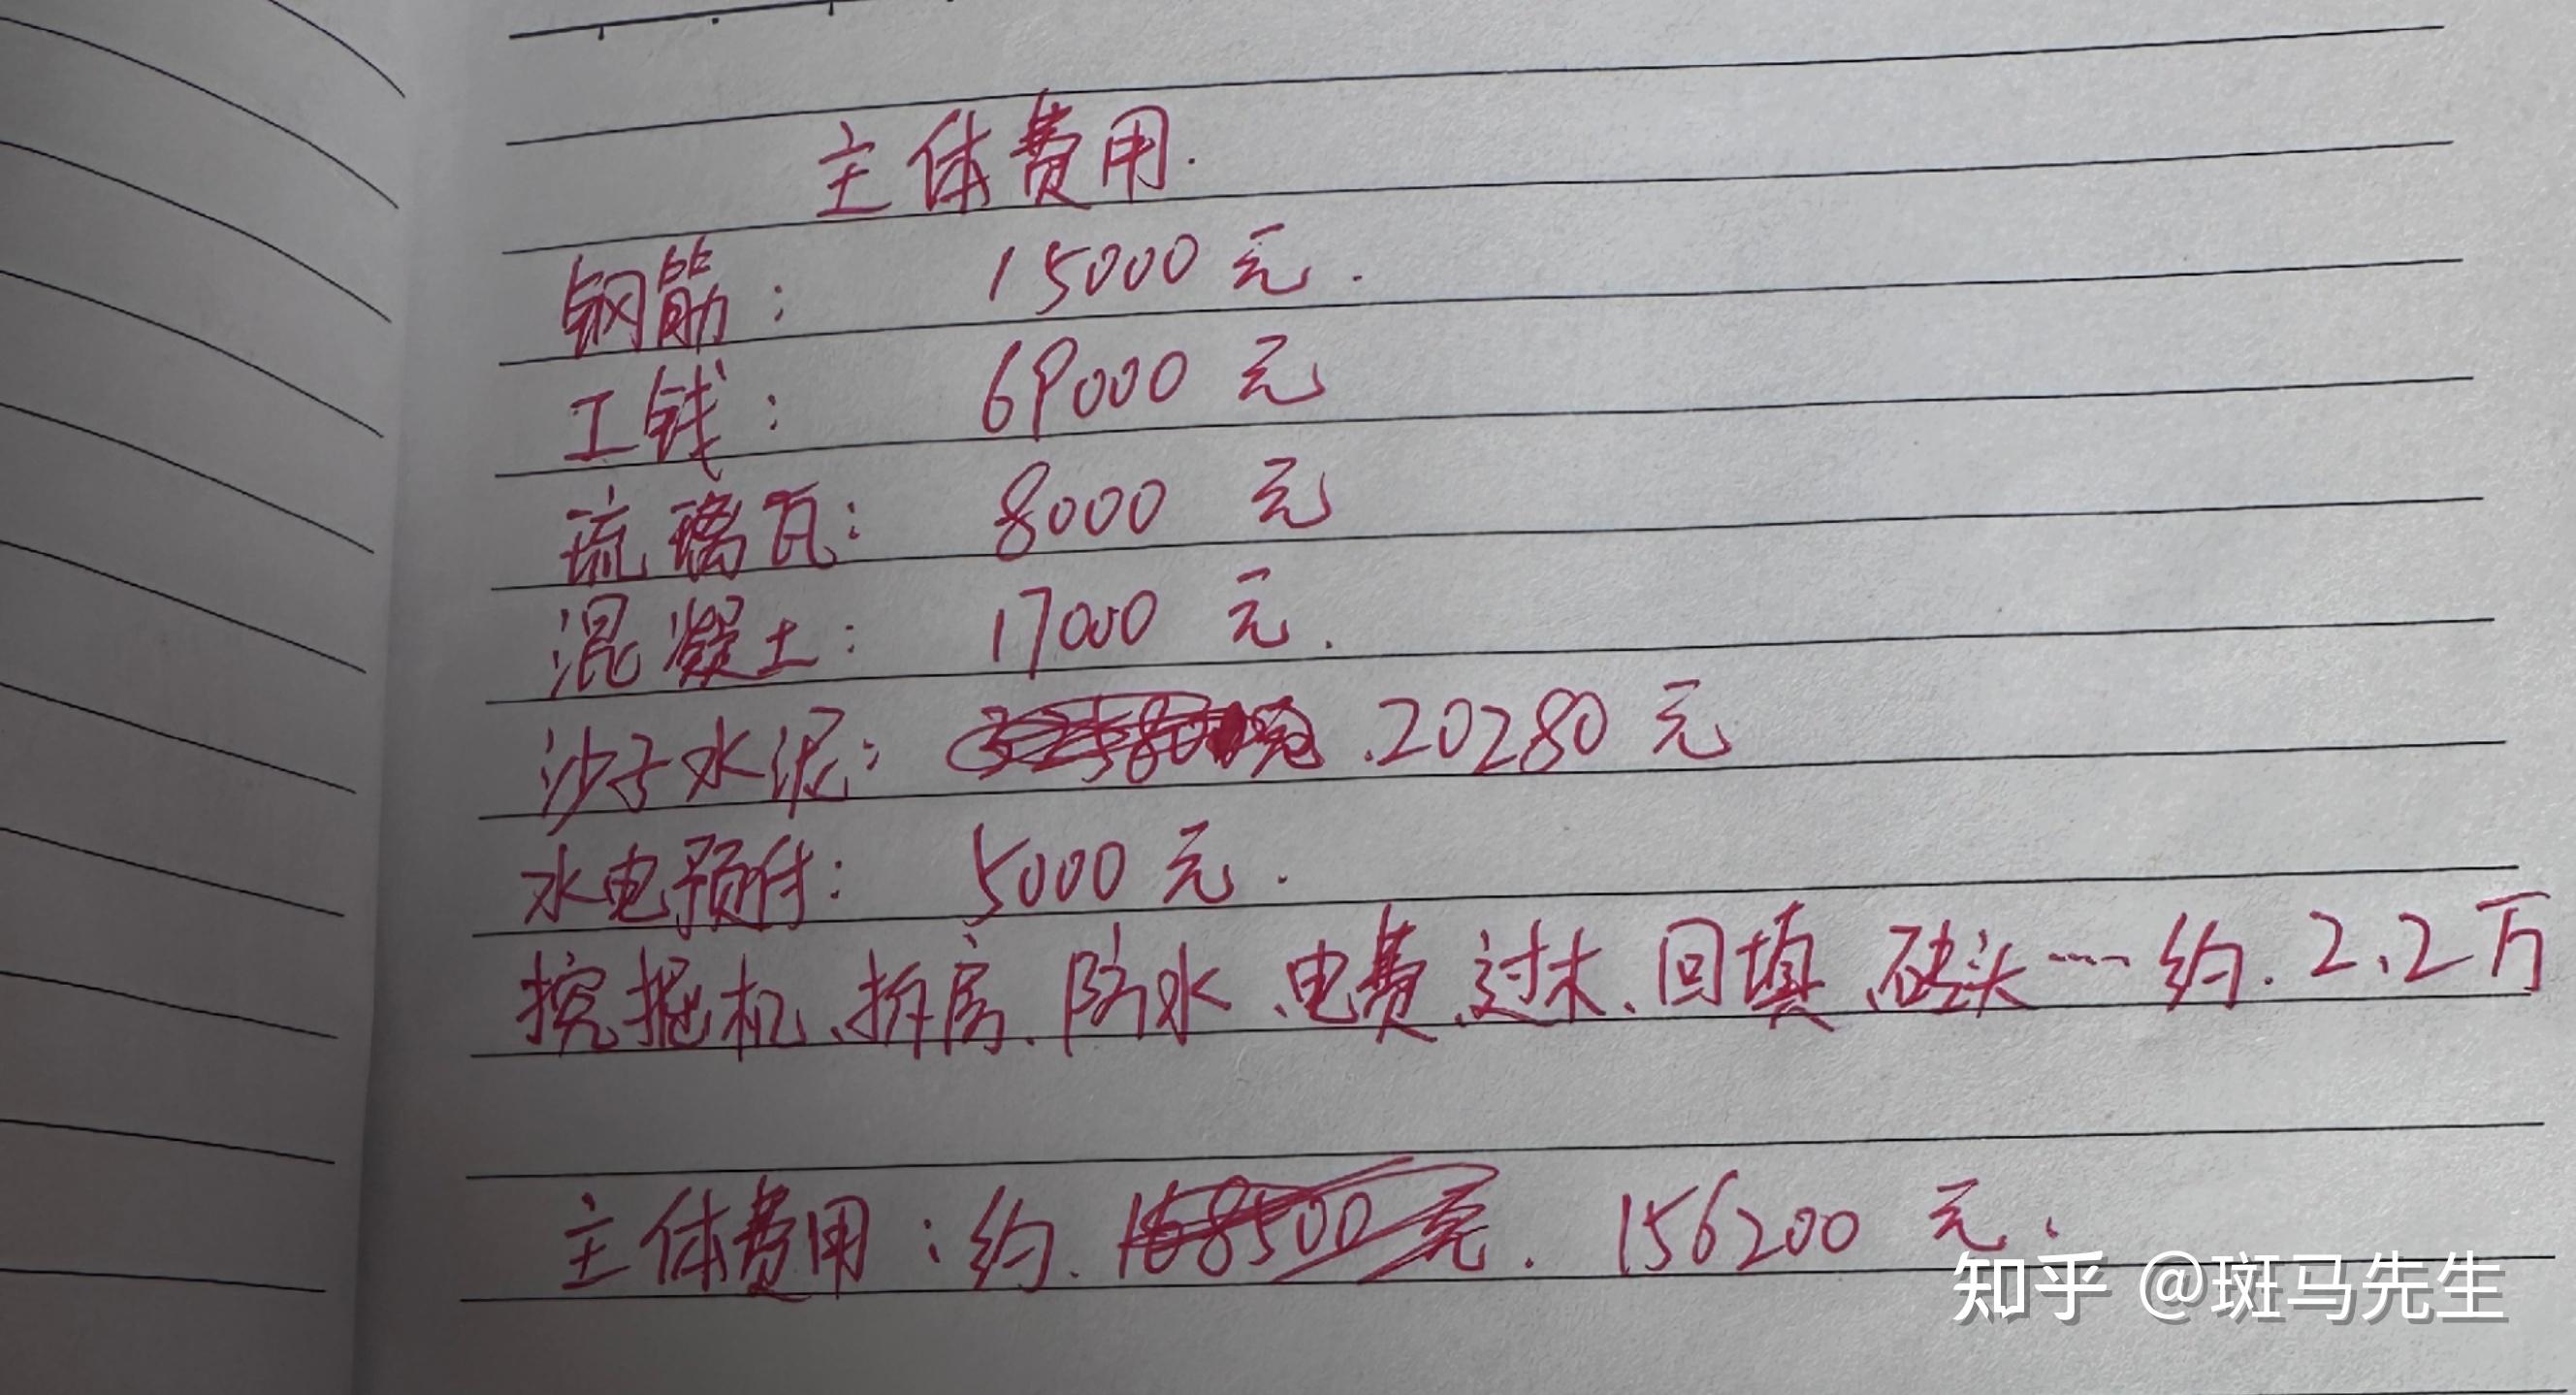 主体费用.
钢筋: 15000元.
工钱: 69000元
琉璃瓦: 8000元
混凝土: 17000元.
沙子水泥: 20280元
水电预付: 5000元.
挖掘机、拆房、防水、电费、过木、回填、砖头……约.2.2万
主体费用:约. 168500元. 156200元.
知乎 @斑马先生